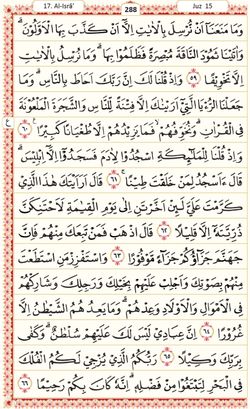 17. Al-Isrâ'
288
Juz 15
وَمَا مَنَعَنَآ اَنْ نُّرْسِلَ بِالْاٰيٰتِ اِلَّآ اَنْ كَذَّبَ بِهَا الْاَوَّلُوْنَۗ
وَاٰتَيْنَا ثَمُوْدَ النَّاقَةَ مُبْصِرَةً فَظَلَمُوْا بِهَاۗ وَمَا نُرْسِلُ بِالْاٰيٰتِ
اِلَّا تَخْوِيْفًا ٥٩ وَاِذْ قُلْنَا لَكَ اِنَّ رَبَّكَ اَحَاطَ بِالنَّاسِۗ وَمَا
جَعَلْنَا الرُّءْيَا الَّتِيْٓ اَرَيْنٰكَ اِلَّا فِتْنَةً لِّلنَّاسِ وَالشَّجَرَةَ الْمَلْعُوْنَةَ
فِى الْقُرْاٰنِۗ وَنُخَوِّفُهُمْۙ فَمَا يَزِيْدُهُمْ اِلَّا طُغْيَانًا كَبِيْرًا ٦٠
وَاِذْ قُلْنَا لِلْمَلٰۤىِٕكَةِ اسْجُدُوْا لِاٰدَمَ فَسَجَدُوْٓا اِلَّآ اِبْلِيْسَۗ
قَالَ ءَاَسْجُدُ لِمَنْ خَلَقْتَ طِيْنًا ٦١ قَالَ اَرَاَيْتَكَ هٰذَا الَّذِيْ
كَرَّمْتَ عَلَيَّ لَىِٕنْ اَخَّرْتَنِ اِلٰى يَوْمِ الْقِيٰمَةِ لَاَحْتَنِكَنَّ
ذُرِّيَّتَهٗٓ اِلَّا قَلِيْلًا ٦٢ قَالَ اذْهَبْ فَمَنْ تَبِعَكَ مِنْهُمْ فَاِنَّ
جَهَنَّمَ جَزَاۤؤُكُمْ جَزَاۤءً مَّوْفُوْرًا ٦٣ وَاسْتَفْزِزْ مَنِ اسْتَطَعْتَ
مِنْهُمْ بِصَوْتِكَ وَاَجْلِبْ عَلَيْهِمْ بِخَيْلِكَ وَرَجِلِكَ وَشَارِكْهُمْ
فِى الْاَمْوَالِ وَالْاَوْلَادِ وَعِدْهُمْۗ وَمَا يَعِدُهُمُ الشَّيْطٰنُ اِلَّا
غُرُوْرًا ٦٤ اِنَّ عِبَادِيْ لَيْسَ لَكَ عَلَيْهِمْ سُلْطٰنٌۗ وَكَفٰى
بِرَبِّكَ وَكِيْلًا ٦٥ رَبُّكُمُ الَّذِيْ يُزْجِيْ لَكُمُ الْفُلْكَ
فِى الْبَحْرِ لِتَبْتَغُوْا مِنْ فَضْلِهٖۗ اِنَّهٗ كَانَ بِكُمْ رَحِيْمًا ٦٦